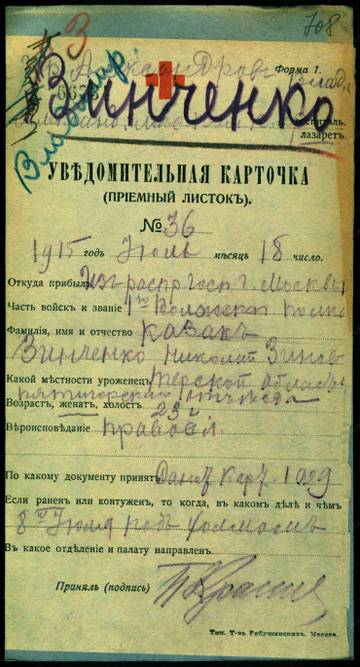 708
3
Владимир.
Форма 1.
Зинченко
госпиталь.
лазаретъ.
УВѢДОМИТЕЛЬНАЯ КАРТОЧКА
(ПРІЕМНЫЙ ЛИСТОКЪ).
№ 36
1915 годъ Іюль мѣсяцъ 18 число.
Откуда прибылъ Изъ распр госп г. Москвы
Часть войскъ и званіе 1го Волжскаго полка
Фамилія, имя и отчество казакъ
Зинченко Николай Зинов
Какой мѣстности уроженецъ Терской области
Пятигорскаго отдѣла
Возрастъ, женатъ, холостъ 23 г
Вѣроисповѣданіе правосл.
По какому документу принятъ 1929
Если раненъ или контуженъ, то когда, въ какомъ дѣлѣ и чѣмъ
8го Іюля подъ Холмомъ
Въ какое отдѣленіе и палату направленъ
Принялъ (подпись)
Тип. Т-ва Рябушинскихъ. Москва.